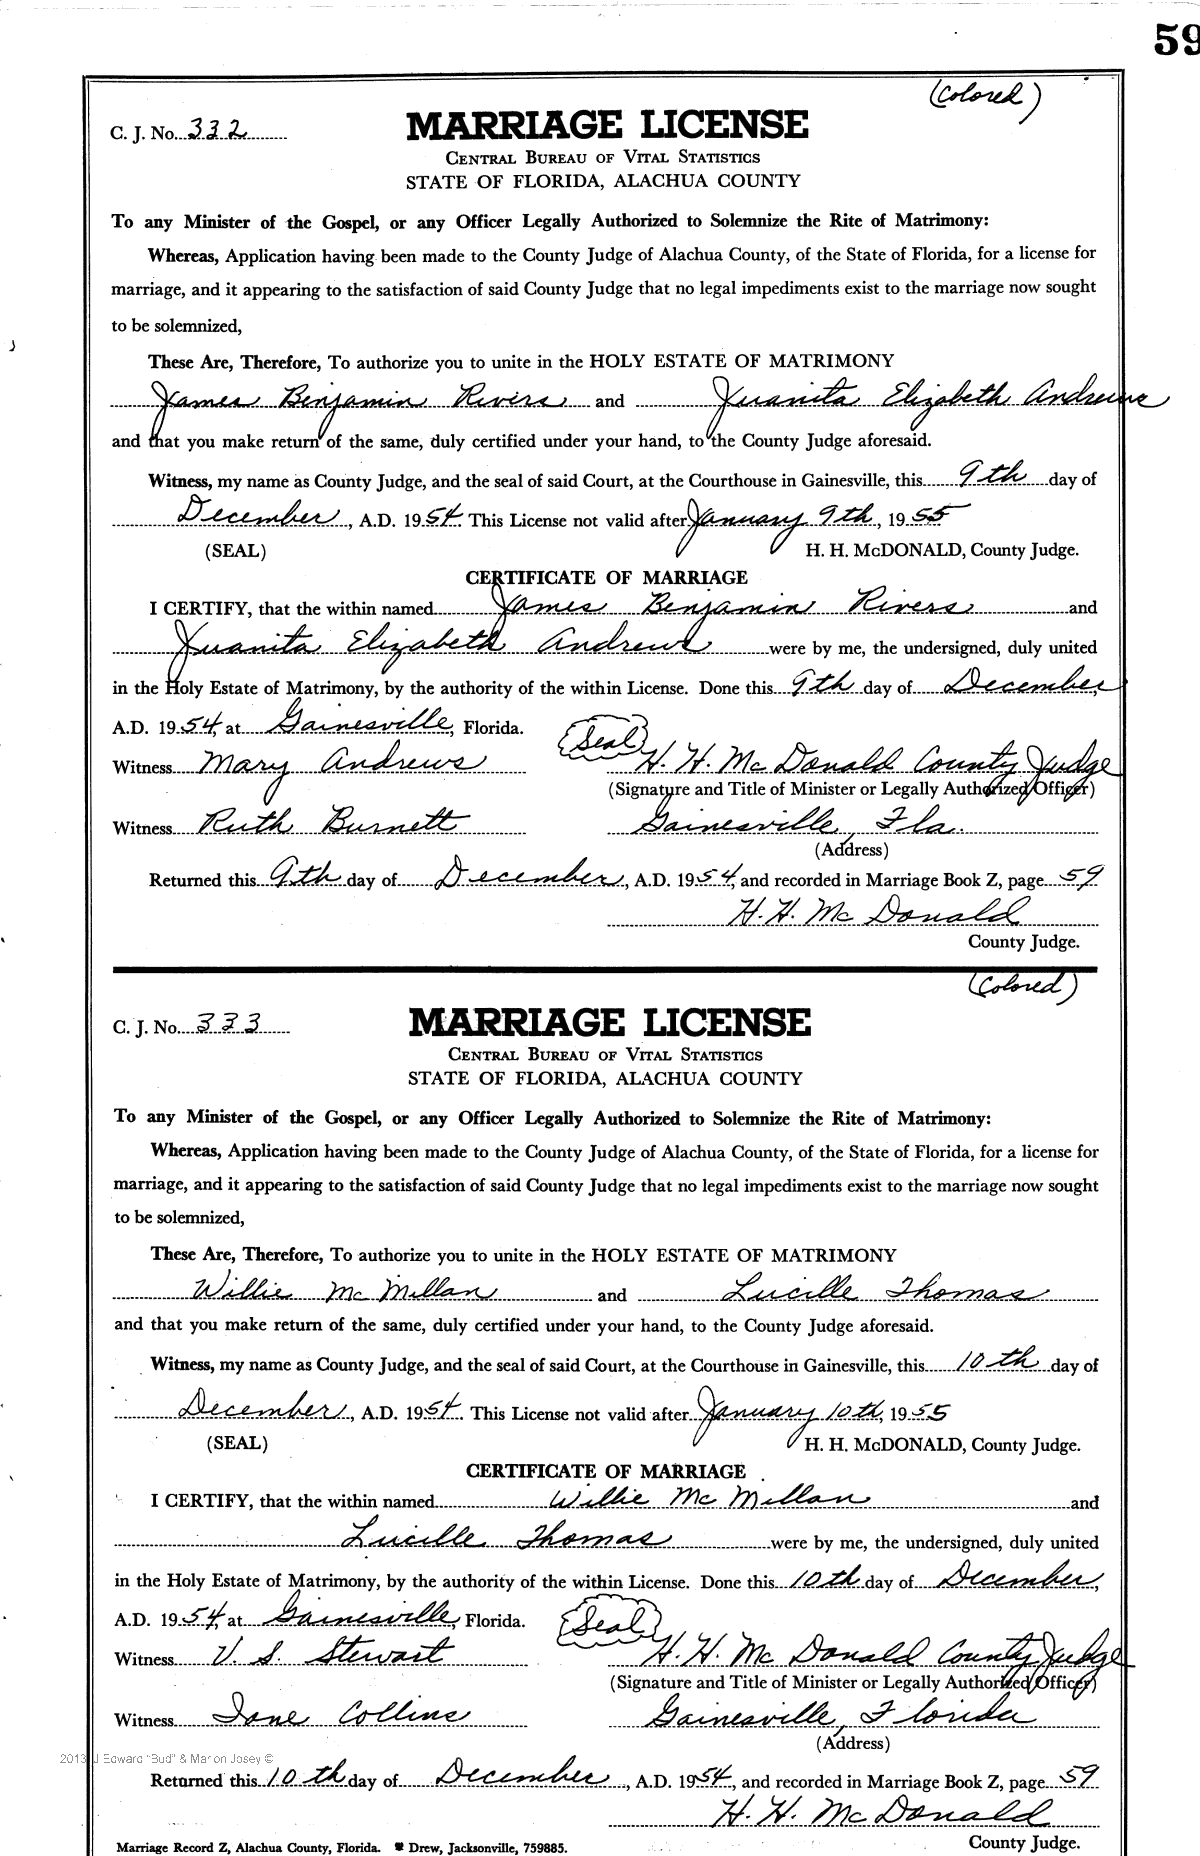 59
(Colored)
C. J. No. 332
MARRIAGE LICENSE
CENTRAL BUREAU OF VITAL STATISTICS
STATE OF FLORIDA, ALACHUA COUNTY
To any Minister of the Gospel, or any Officer Legally Authorized to Solemnize the Rite of Matrimony:
Whereas, Application having been made to the County Judge of Alachua County, of the State of Florida, for a license for
marriage, and it appearing to the satisfaction of said County Judge that no legal impediments exist to the marriage now sought
to be solemnized,
These Are, Therefore, To authorize you to unite in the HOLY ESTATE OF MATRIMONY
James Benjamin Rivers and Juanita Elizabeth Andrews
and that you make return of the same, duly certified under your hand, to the County Judge aforesaid.
Witness, my name as County Judge, and the seal of said Court, at the Courthouse in Gainesville, this 9th day of
December, A.D. 1954. This License not valid after January 9th, 1955
(SEAL) H. H. McDONALD, County Judge.
CERTIFICATE OF MARRIAGE
I CERTIFY, that the within named James Benjamin Rivers and
Juanita Elizabeth Andrews were by me, the undersigned, duly united
in the Holy Estate of Matrimony, by the authority of the within License. Done this 9th day of December,
A.D. 1954, at Gainesville, Florida.
(Seal)
Witness Mary Andrews H. H. McDonald County Judge
(Signature and Title of Minister or Legally Authorized Officer)
Witness Ruth Burnett Gainesville, Fla.
(Address)
Returned this 9th day of December, A.D. 1954, and recorded in Marriage Book Z, page 59
H. H. McDonald
County Judge.
(Colored)
C. J. No. 333
MARRIAGE LICENSE
CENTRAL BUREAU OF VITAL STATISTICS
STATE OF FLORIDA, ALACHUA COUNTY
To any Minister of the Gospel, or any Officer Legally Authorized to Solemnize the Rite of Matrimony:
Whereas, Application having been made to the County Judge of Alachua County, of the State of Florida, for a license for
marriage, and it appearing to the satisfaction of said County Judge that no legal impediments exist to the marriage now sought
to be solemnized,
These Are, Therefore, To authorize you to unite in the HOLY ESTATE OF MATRIMONY
Willie McMillan and Lucille Thomas
and that you make return of the same, duly certified under your hand, to the County Judge aforesaid.
Witness, my name as County Judge, and the seal of said Court, at the Courthouse in Gainesville, this 10th day of
December, A.D. 1954. This License not valid after January 10th, 1955
(SEAL) H. H. McDONALD, County Judge.
CERTIFICATE OF MARRIAGE
I CERTIFY, that the within named Willie McMillan and
Lucille Thomas were by me, the undersigned, duly united
in the Holy Estate of Matrimony, by the authority of the within License. Done this 10th day of December,
A.D. 1954, at Gainesville, Florida.
(Seal)
Witness V. S. Stewart H. H. McDonald County Judge
(Signature and Title of Minister or Legally Authorized Officer)
Witness Ione Collins Gainesville, Florida
(Address)
2013 J Edward "Bud" & Marion Josey ©
Returned this 10th day of December, A.D. 1954, and recorded in Marriage Book Z, page 59
H. H. McDonald
County Judge.
Marriage Record Z, Alachua County, Florida. Drew, Jacksonville, 759885.